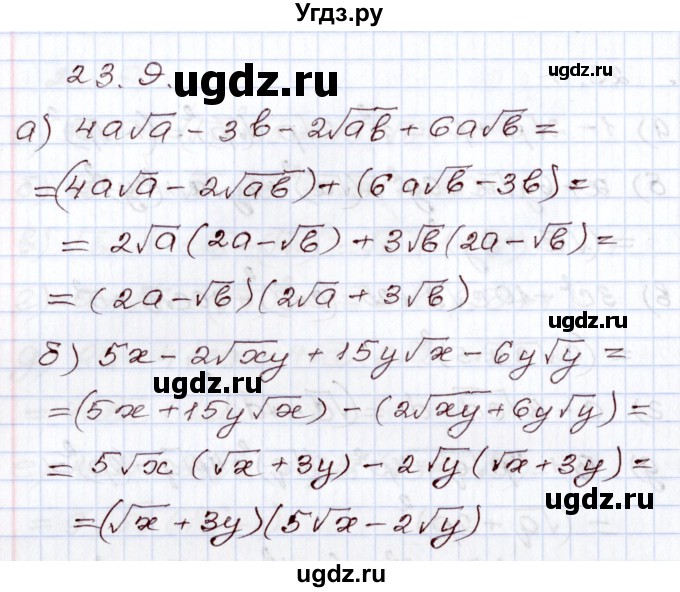 Угдз.ру
23.9.
ugdz.ru
ugdz.ru
а) 4a√a - 3b - 2√ab + 6a√b =
= (4a√a - 2√ab) + (6a√b - 3b) =
= 2√a (2a - √b) + 3√b (2a - √b) =
= (2a - √b)(2√a + 3√b)
ugdz.ru
б) 5x - 2√xy + 15y√x - 6y√y =
ugdz.ru
= (5x + 15y√x) - (2√xy + 6y√y) =
= 5√x (√x + 3y) - 2√y (√x + 3y) =
ugdz.ru
= (√x + 3y)(5√x - 2√y)
ugdz.ru